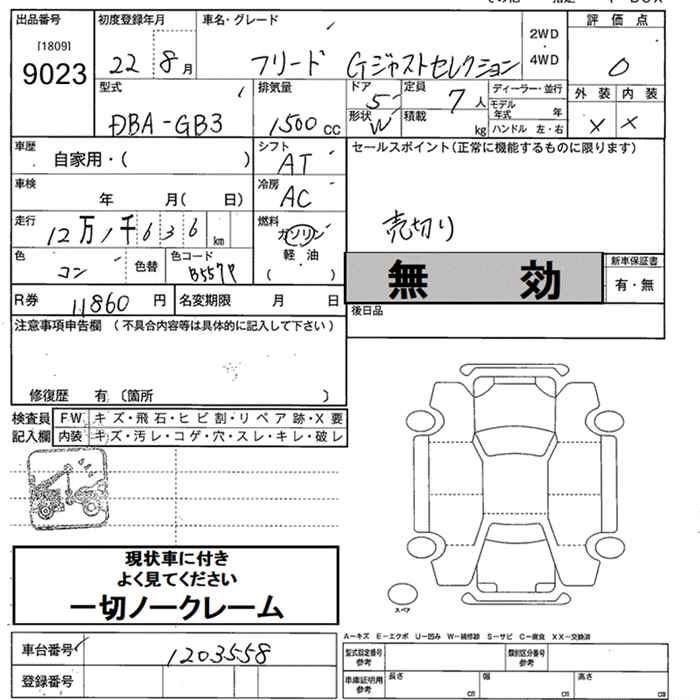 出品番号 初度登録年月 車名・グレード 2WD 評価点
[1809] 22 8月 フリード Gジャストセレクション ・ 0
9023 4WD
型式 排気量 ドア 5 定員 7人 ディーラー・並行 外装 内装
DBA-GB3 1500cc 形状 W 積載 kg モデル年式 年 × ×
ハンドル 左・右
車歴 自家用・( ) シフト AT セールスポイント(正常に機能するものに限ります)
車検 年 月( 日) 冷房 AC
走行 12万1千636km 燃料 ガソリン 売切り
色 コン 色替 色コード B557P 軽油 無効 新車保証書
( ) 有・無
R券 11,860円 名変期限 月 日 後日品
注意事項申告欄 (不具合内容等は具体的に記入して下さい)
修復歴 有 〔箇所 〕
検査員 FW キズ・飛石・ヒビ割・リペア跡・X要
記入欄 内装 キズ・汚レ・コゲ・穴・スレ・キレ・破レ
現状車に付き
よく見てください
一切ノークレーム
スペア
A-キズ E-エクボ U-凹み W-補修跡 S-サビ C-腐食 XX-交換済
車台番号 1203558 型式指定番号 参考 類別区分番号 参考
登録番号 車庫証明用 参考 長さ cm 幅 cm 高さ cm